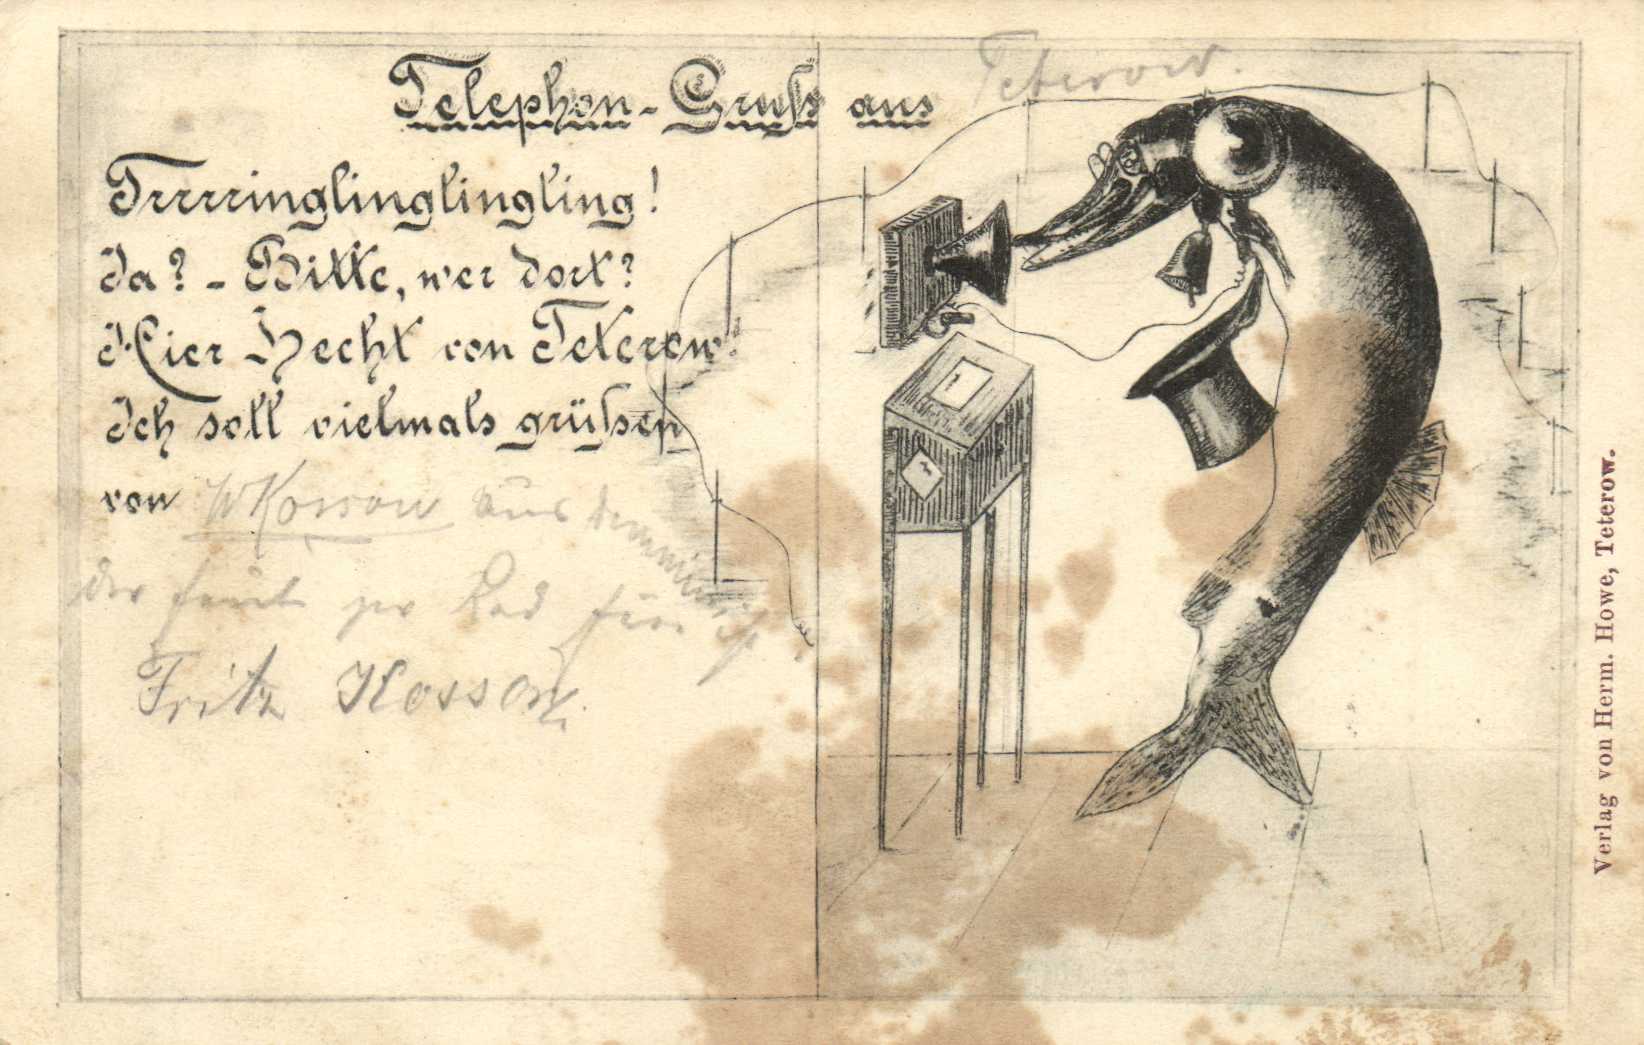 Telephon-Gruss aus Teterow.
Trrrrringlinglingling!
Ja? - Bitte, wer dort?
Hier Hecht von Teterow!
Ich soll vielmals grüssen
von WKossow aus
der per Rad
Fritz Kossow.
Verlag von Herm. Howe, Teterow.